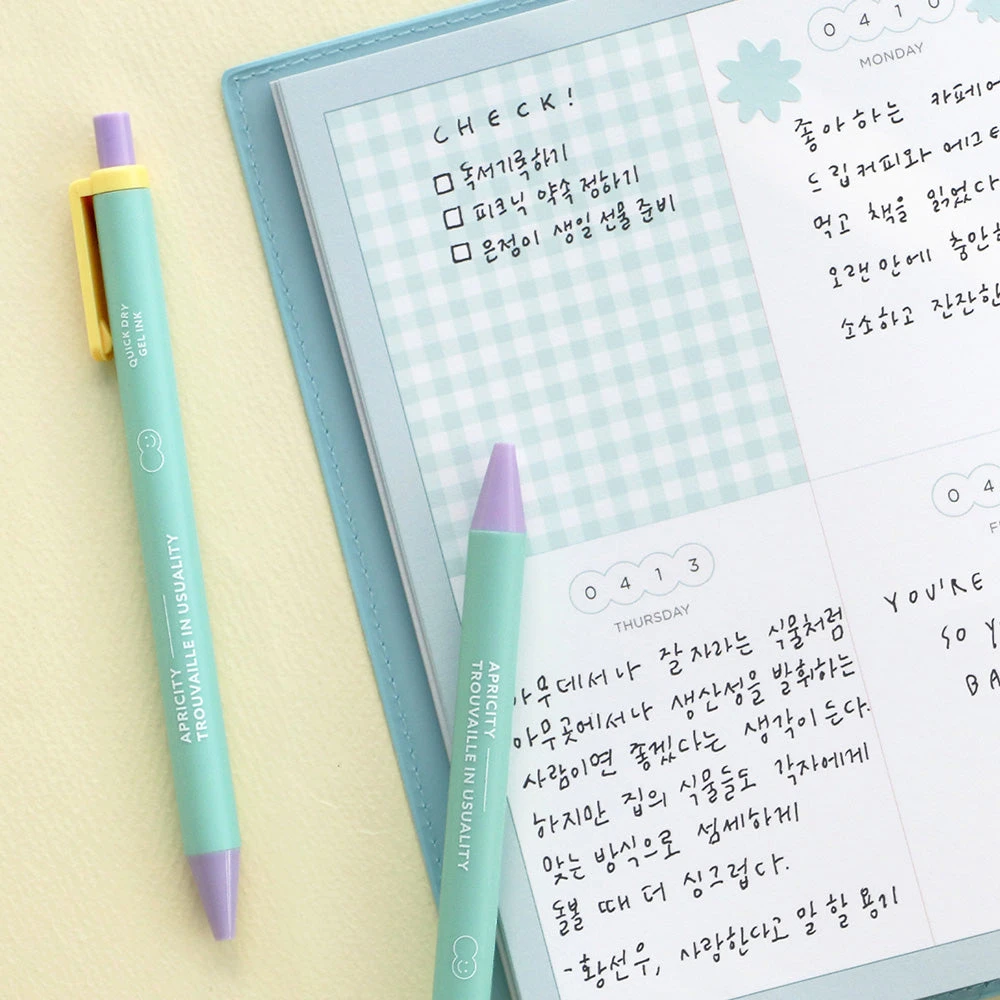 CHECK!
□ 독서기록하기
□ 피크닉 약속 정하기
□ 은정이 생일 선물 준비
0410
MONDAY
좋아하는 카페에
드립커피와 에그
먹고 책을 읽었다
오랜만에 충만
소소하고 잔잔한
0413
THURSDAY
아무데서나 잘 자라는 식물처럼
아무곳에서나 생산성을 발휘하는
사람이면 좋겠다는 생각이 든다.
하지만 집의 식물들도 각자에게
맞는 방식으로 섬세하게
돌볼 때 더 싱그럽다.
-황선우, 사랑한다고 말할 용기
04
F
YOU'RE
SO Y
BA
QUICK DRY
GEL INK
APRICITY
TROUVAILLE IN USUALITY
APRICITY
TROUVAILLE IN USUALITY